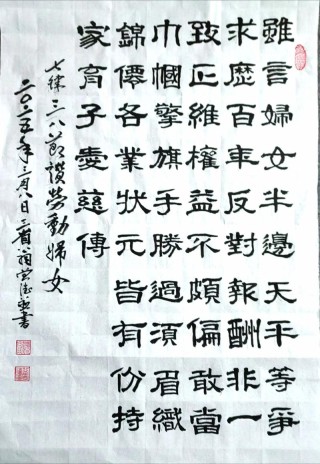 雖言婦女半邊天平等爭
求歷百年反對報酬非一
致正維權益不頗偏敢當
巾幗擎旗手勝過須眉織
錦僊各業狀元皆有份持
家育子愛慈傳
七律三八節讚勞動婦女
二〇二五年三月八日三省翁書